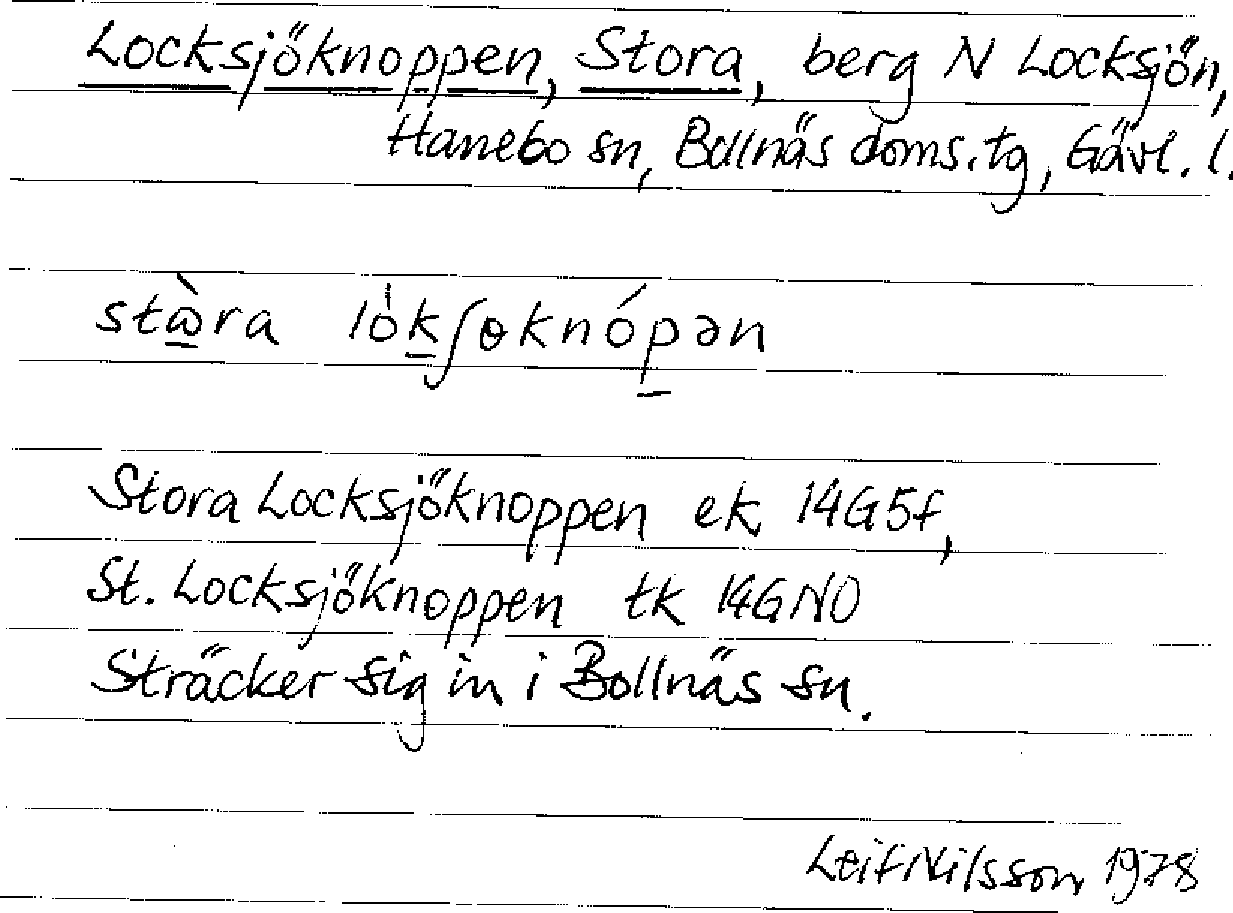 Locksjöknoppen, Stora, berg N Locksjön,
Hanebo sn, Bollnäs doms.tg, Gävl. l.
stɷ̀ra lók̲ʃɵknóp̲ən
Stora Locksjöknoppen ek 14G5f,
St. Locksjöknoppen tk 14GNO
Sträcker sig in i Bollnäs sn.
Leif Nilsson 1978